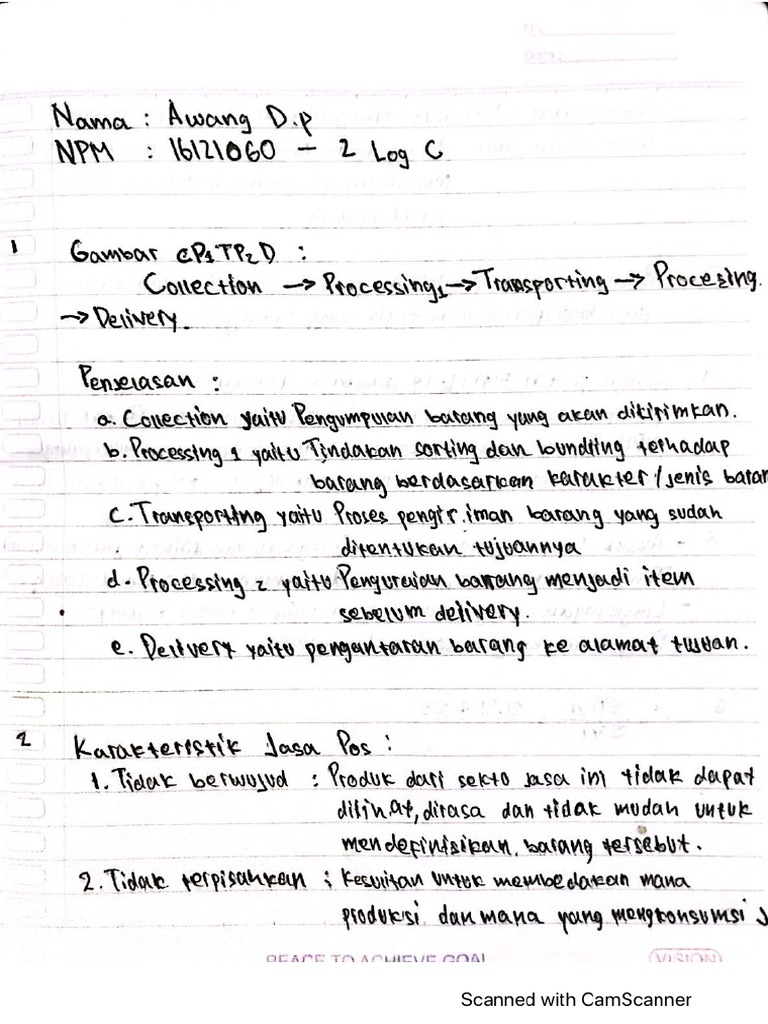 Nama : Awang D.p
NPM : 16121060 - 2 Log C
1 Gambar CP1TP2D :
Collection → Processing1 → Transporting → Procesing.
→ Delivery.
Penjelasan :
a. Collection yaitu Pengumpulan barang yang akan dikirimkan.
b. Processing 1 yaitu Tindakan sorting dan bundling terhadap
barang berdasarkan karakter/jenis baran
c. Transporting yaitu Proses pengiriman barang yang sudah
ditentukan tujuannya
d. Processing 2 yaitu Penguraian barang menjadi item
sebelum delivery.
e. Delivery yaitu pengantaran barang ke alamat tujuan.
2 Karakteristik Jasa Pos :
1. Tidak berwujud : Produk dari sekto jasa ini tidak dapat
dilihat, dirasa dan tidak mudah untuk
mendefinisikan barang tersebut.
2. Tidak terpisahkan : Kesulitan untuk membedakan mana
produksi dan mana yang mengkonsumsi J
PEACE TO ACHIEVE GOAL
VISION
Scanned with CamScanner